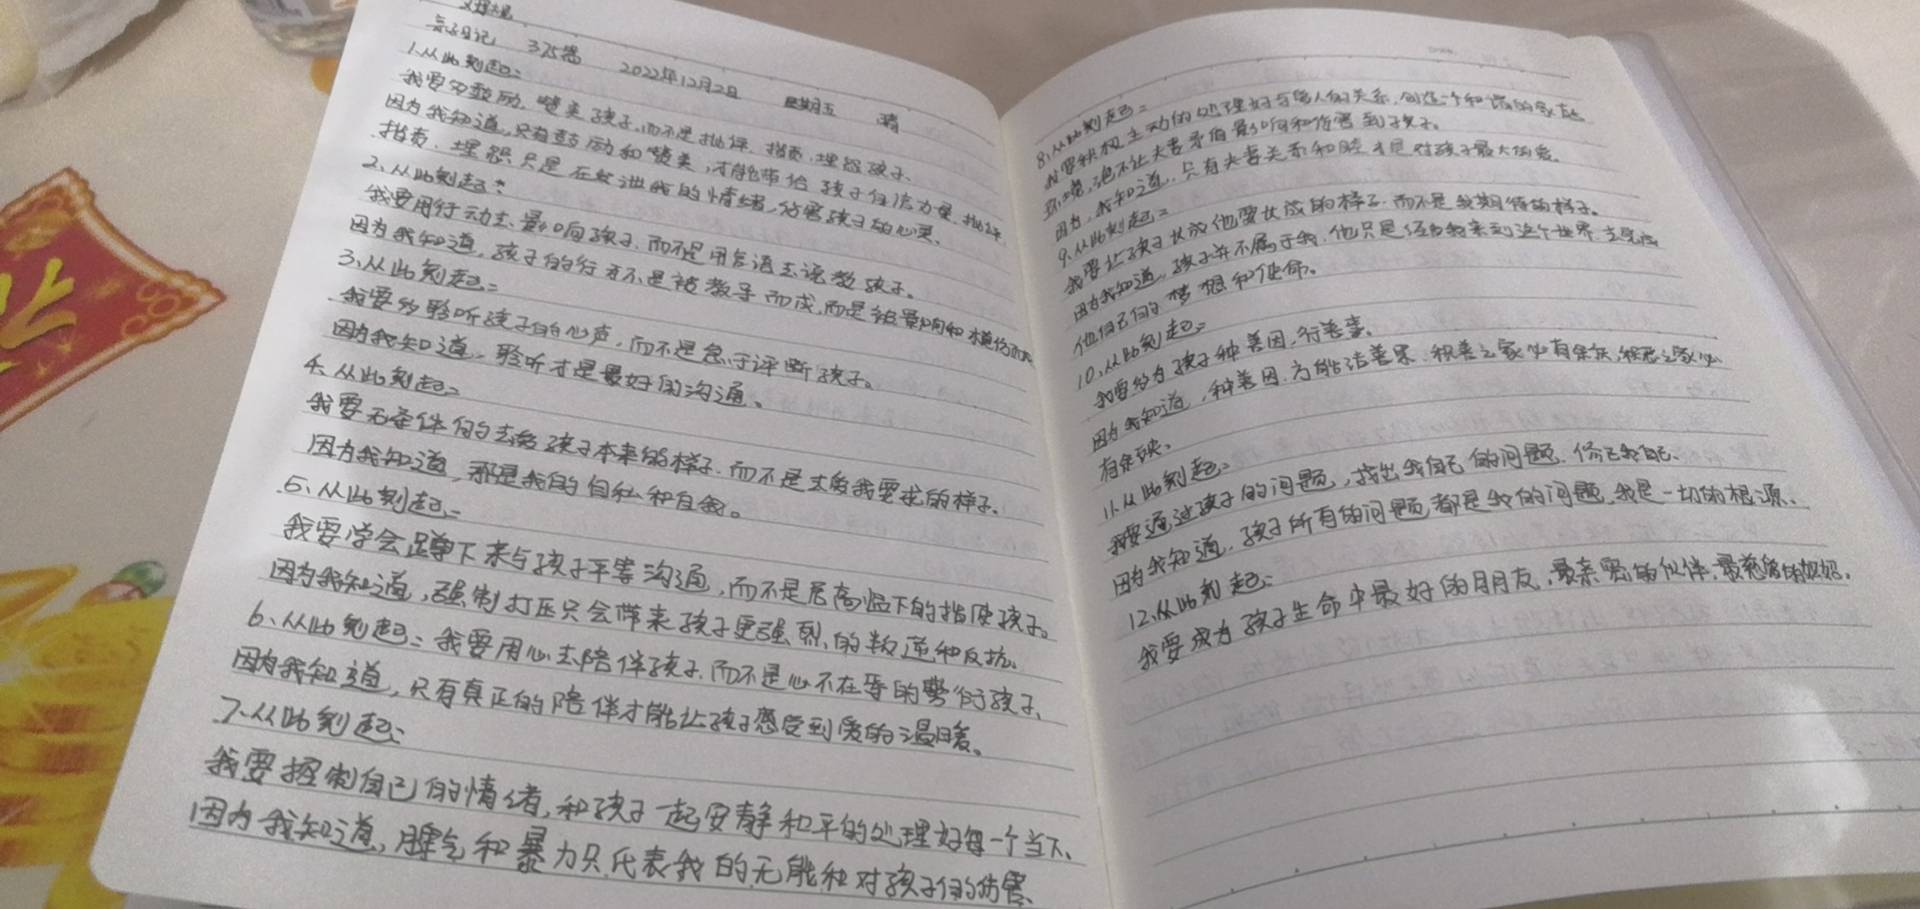 亲子日记 375篇 2022年12月2日 星期五 晴
1.从此刻起:
我要多鼓励、赞美孩子,而不是批评、指责、埋怨孩子.
因为我知道,只有鼓励和赞美,才能带给孩子自信力量,批评、
指责、埋怨只是在发泄我的情绪,伤害孩子的心灵.
2、从此刻起:
我要用行动去影响孩子,而不是用言语去说教孩子。
因为我知道,孩子的行为不是被教导而成,而是被影响和模仿而成
3、从此刻起:
我要多聆听孩子的心声,而不是急于评断孩子。
因为我知道,聆听才是最好的沟通。
4.从此刻起:
我要无条件的去爱孩子本来的样子,而不是去爱我要求的样子.
因为我知道,那是我的自私和自我。
5、从此刻起:
我要学会蹲下来与孩子平等沟通,而不是居高临下的指使孩子。
因为我知道,强制打压只会带来孩子更强烈的叛逆和反抗.
6、从此刻起:我要用心去陪伴孩子,而不是心不在焉的敷衍孩子、
因为我知道,只有真正的陪伴才能让孩子感受到爱的温暖。
7、从此刻起:
我要控制自己的情绪,和孩子一起安静和平的处理好每一个当下、
因为我知道,脾气和暴力只代表我的无能和对孩子的伤害、
8、从此刻起:
我要积极主动的处理好与爱人的关系,创造一个和谐的家庭
环境,绝不让夫妻矛盾影响和伤害到孩子。
因为,我知道,只有夫妻关系和睦才是对孩子最大的爱。
9、从此刻起:
我要让孩子长成他要长成的样子,而不是我期待的样子。
因为我知道,孩子并不属于我,他只是经由我来到这个世界,去完成
他自己的梦想和使命。
10、从此刻起:
我要多为孩子种善因,行善事。
因为我知道,种善因,方能结善果,积善之家必有余庆,积恶之家必
有余殃、
11、从此刻起:
我要通过孩子的问题,找出我自己的问题,修正我自己.
因为我知道,孩子所有的问题都是我的问题,我是一切的根源、
12、从此刻起:
我要成为孩子生命中最好的朋友,最亲密的伙伴,最慈爱的妈妈.